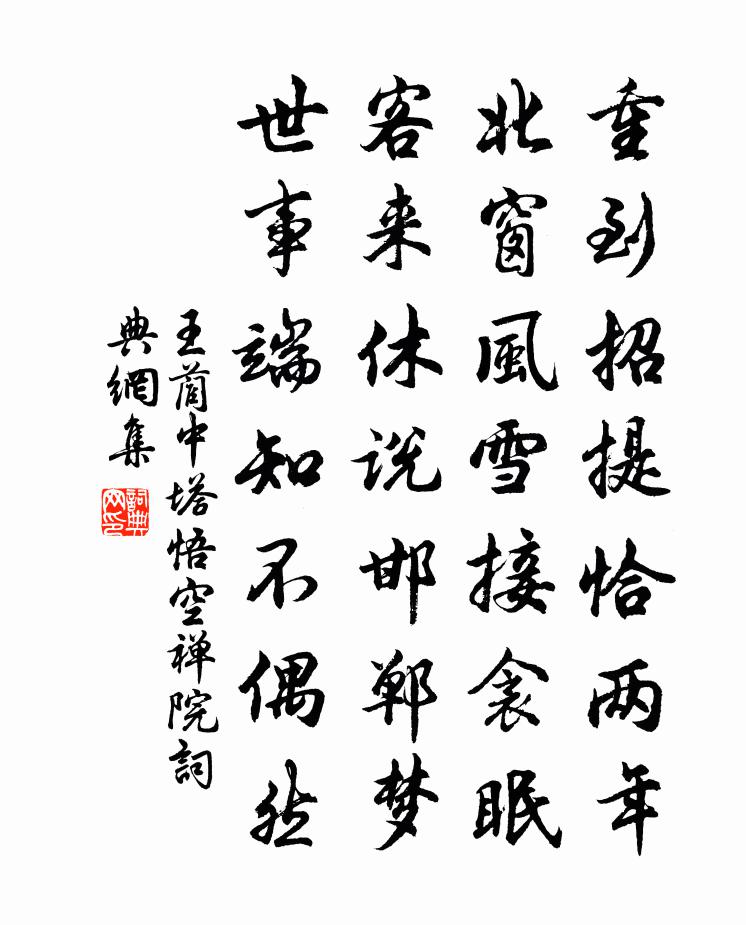 重到招提恰两年
北窗風雪接衾眠
客来休说邯郸梦
世事端知不偶然
王蔺中塔悟空禅院詞
典網集
詞典网印